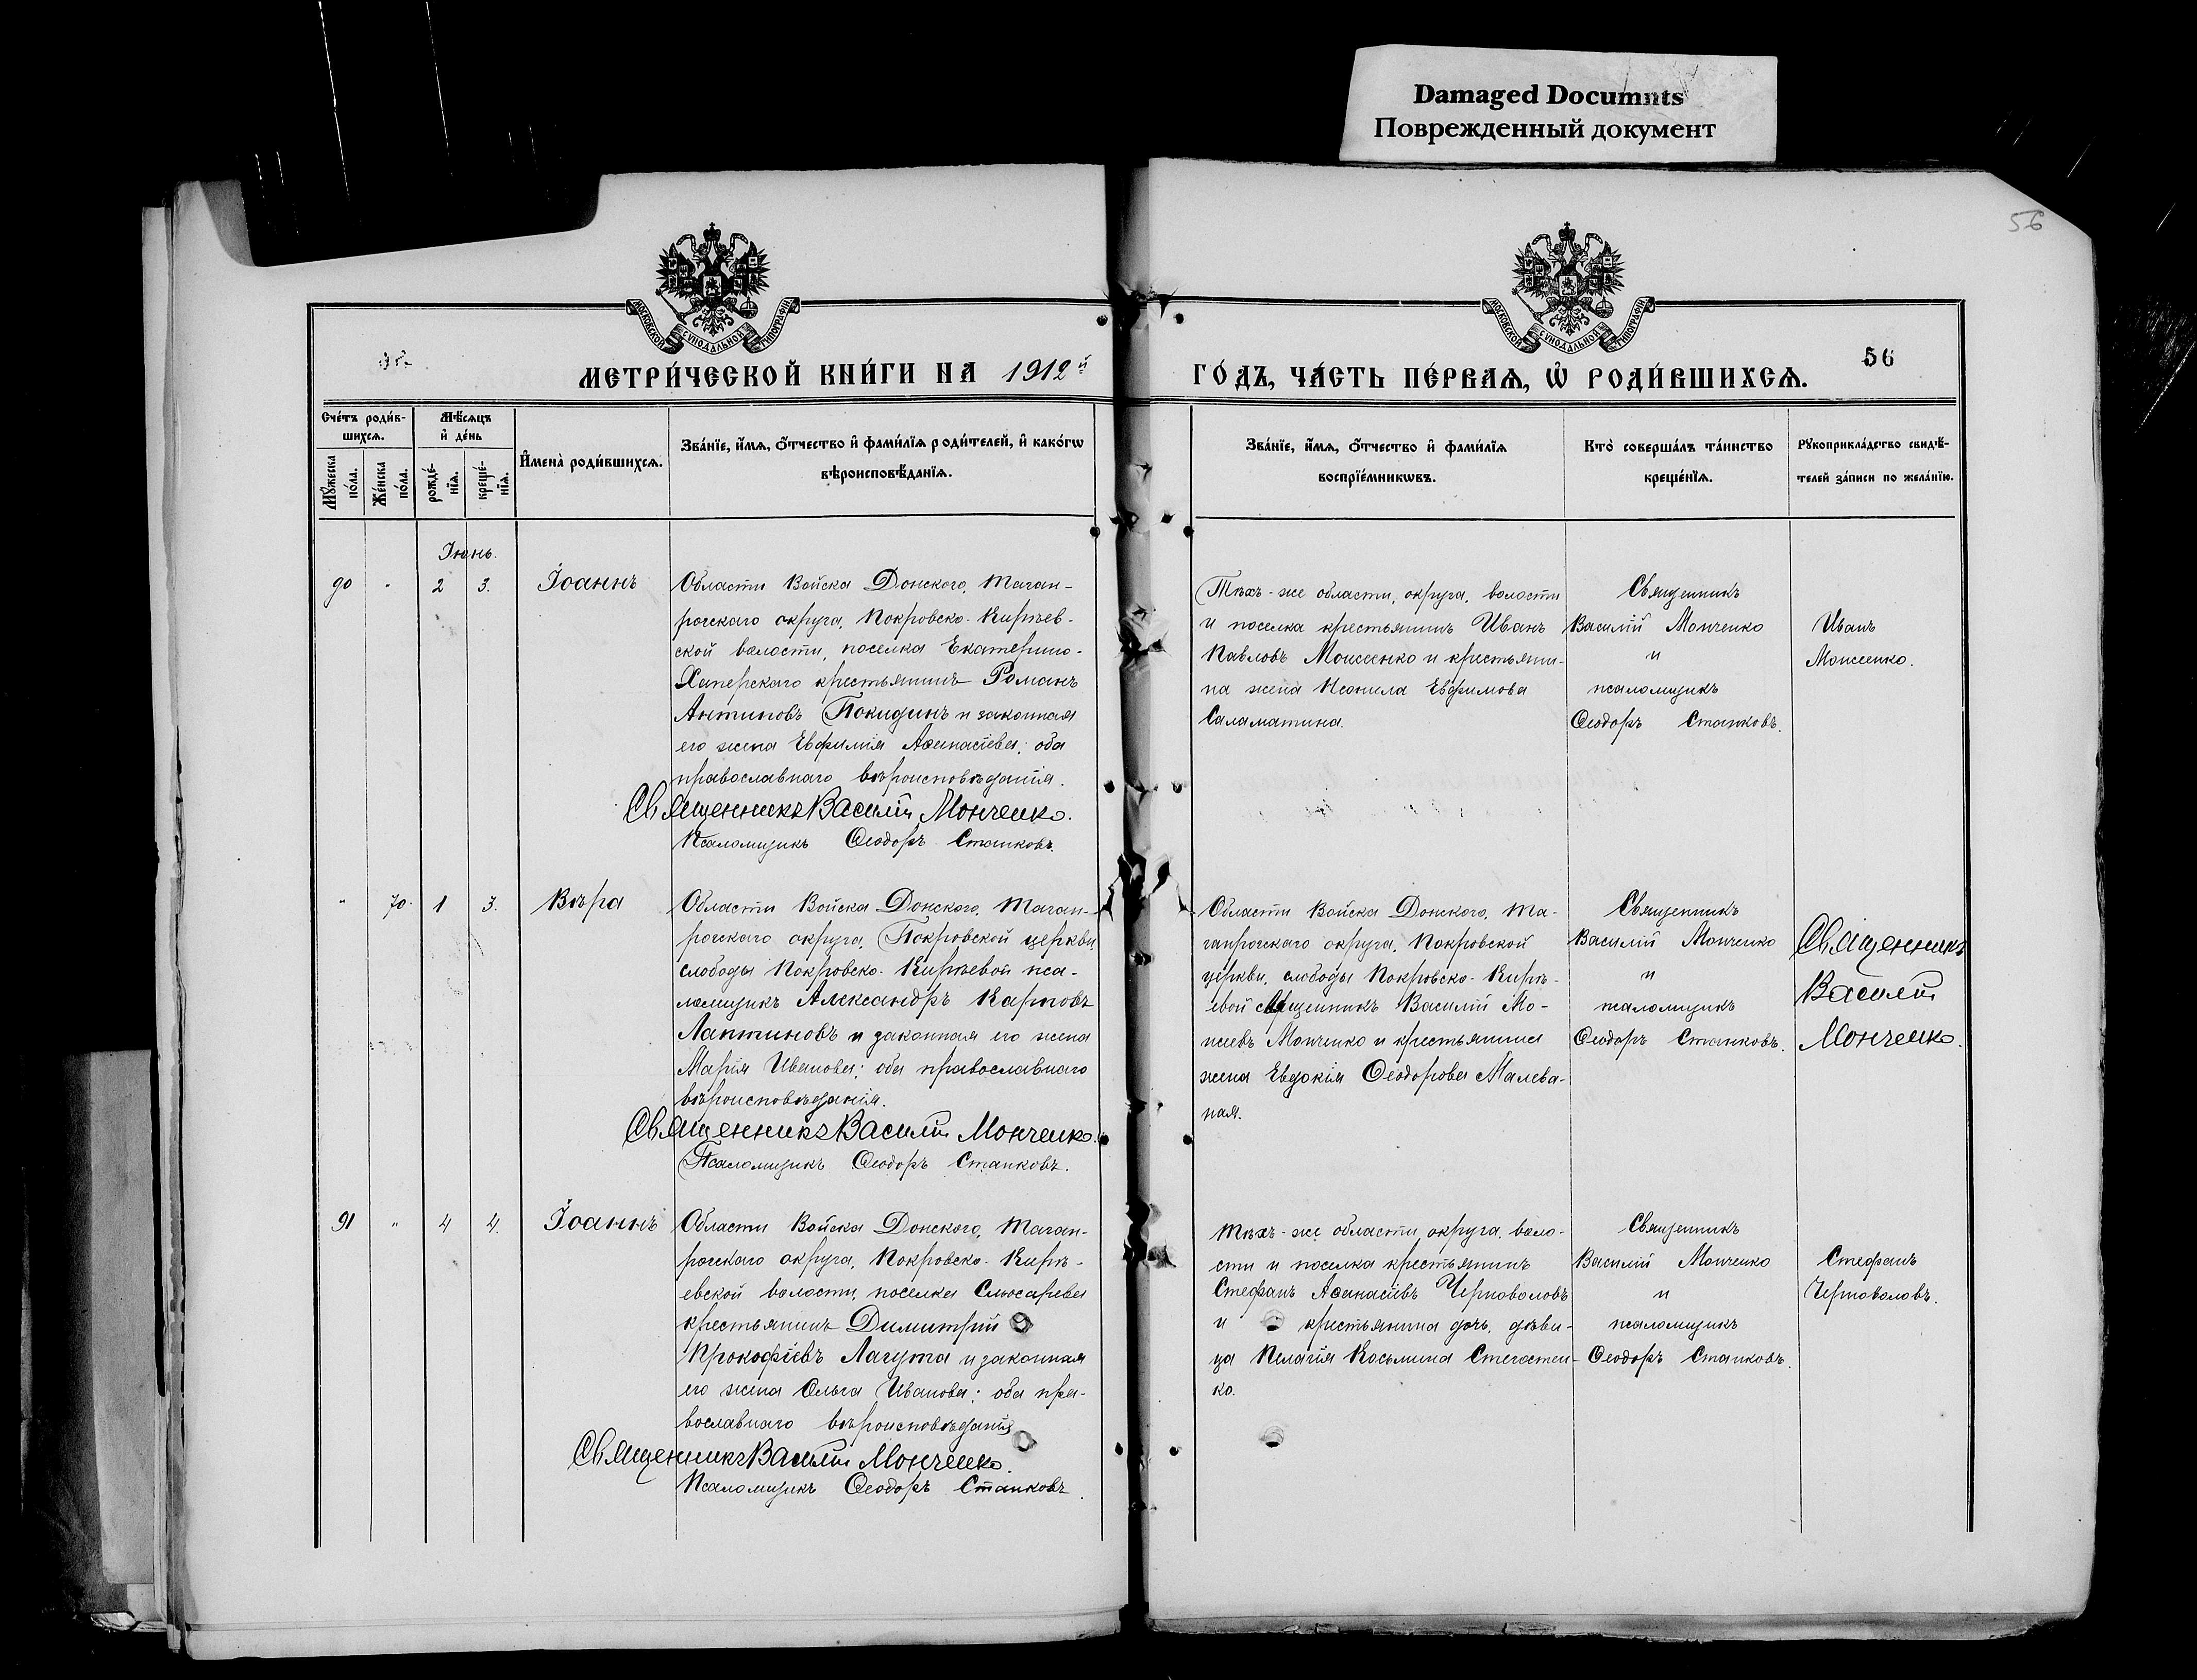 Damaged Documnts
Поврежденный документ
56
МОСКОВСКОЙ СѴНОДАЛЬНОЙ ТИПОГРАФІИ
МОСКОВСКОЙ СѴНОДАЛЬНОЙ ТИПОГРАФІИ
МЕТРИ́ЧЕСКОЙ КНИ́ГИ НА 1912й
ГО́ДЪ, ЧА́СТЬ ПЕ́РВАѦ, Ѡ҆ РОДИ́ВШИХСѦ.
56
Сче́тъ роди́в-
шихсѧ.
Мѣ́сѧцъ
и҆ де́нь
Мꙋ́жеска
по́ла.
Же́нска
по́ла.
рожде́-
нїѧ.
креще́-
нїѧ.
И҆мена̀ роди́вшихсѧ.
Зва́нїе, и҆́мѧ, ѻ҆́тчество и҆ фами́лїѧ роди́телей, и҆ како́гѡ
вѣроисповѣ́данїѧ.
Зва́нїе, и҆́мѧ, ѻ҆́тчество и҆ фами́лїѧ
воспрїе́мникѡвъ.
Кто̀ соверша́лъ та́инство
креще́нїѧ.
Рꙋкоприкла́дство свидѣ́-
телей за́писи по жела́нїю.
Іюнь.
90 " 2 3. Іоаннъ
Области Войска Донского, Таган-
рогскаго округа, Покровско-Кирѣев-
ской волости, поселка Екатерино-
Хаперскаго крестьянинъ Романъ
Антиповъ Покидинъ и законная
его жена Евфимія Аѳанасіева; оба
православнаго вѣроисповѣданія.
Священникъ Василій Монченко.
Псаломщикъ Ѳеодоръ Станковъ.
Тѣхъ-же области, округа, волости
и поселка крестьянинъ Иванъ
Павловъ Моисеенко и крестьяни-
на жена Неонила Евфимова
Саламатина.
Священникъ
Василій Монченко
и
псаломщикъ
Ѳеодоръ Станковъ.
Иванъ
Моисеенко.
" 70. 1 3. Вѣра
Области Войска Донского, Таган-
рогскаго округа, Покровской церкви,
слободы Покровско-Кирѣевой пса-
ломщикъ Александръ Карповъ
Лаптиновъ и законная его жена
Марія Иванова; оба православнаго
вѣроисповѣданія.
Священникъ Василій Монченко.
Псаломщикъ Ѳеодоръ Станковъ.
Области Войска Донского, Та-
ганрогскаго округа, Покровской
церкви, слободы Покровско-Кирѣ-
евой священникъ Василій Мо-
исеевъ Монченко и крестьянина
жена Евдокія Ѳеодорова Малева-
ная.
Священникъ
Василій Монченко
и
псаломщикъ
Ѳеодоръ Станковъ.
Священникъ
Василій
Монченко.
91 " 4 4. Іоаннъ
Области Войска Донского, Таган-
рогскаго округа, Покровско-Кирѣ-
евской волости, поселка Слюсарева
крестьянинъ Димитрій
Прокофіевъ Лагута и законная
его жена Ольга Иванова; оба пра-
вославнаго вѣроисповѣданія
Священникъ Василій Монченко.
Псаломщикъ Ѳеодоръ Станковъ.
Тѣхъ-же области, округа, воло-
сти и поселка крестьянинъ
Стефанъ Аѳанасіевъ Черноволовъ
и крестьянина дочь, дѣви-
ца Пелагія Косьмина Стегостен-
ко.
Священникъ
Василій Монченко
и
псаломщикъ
Ѳеодоръ Станковъ.
Стефанъ
Черноволовъ.